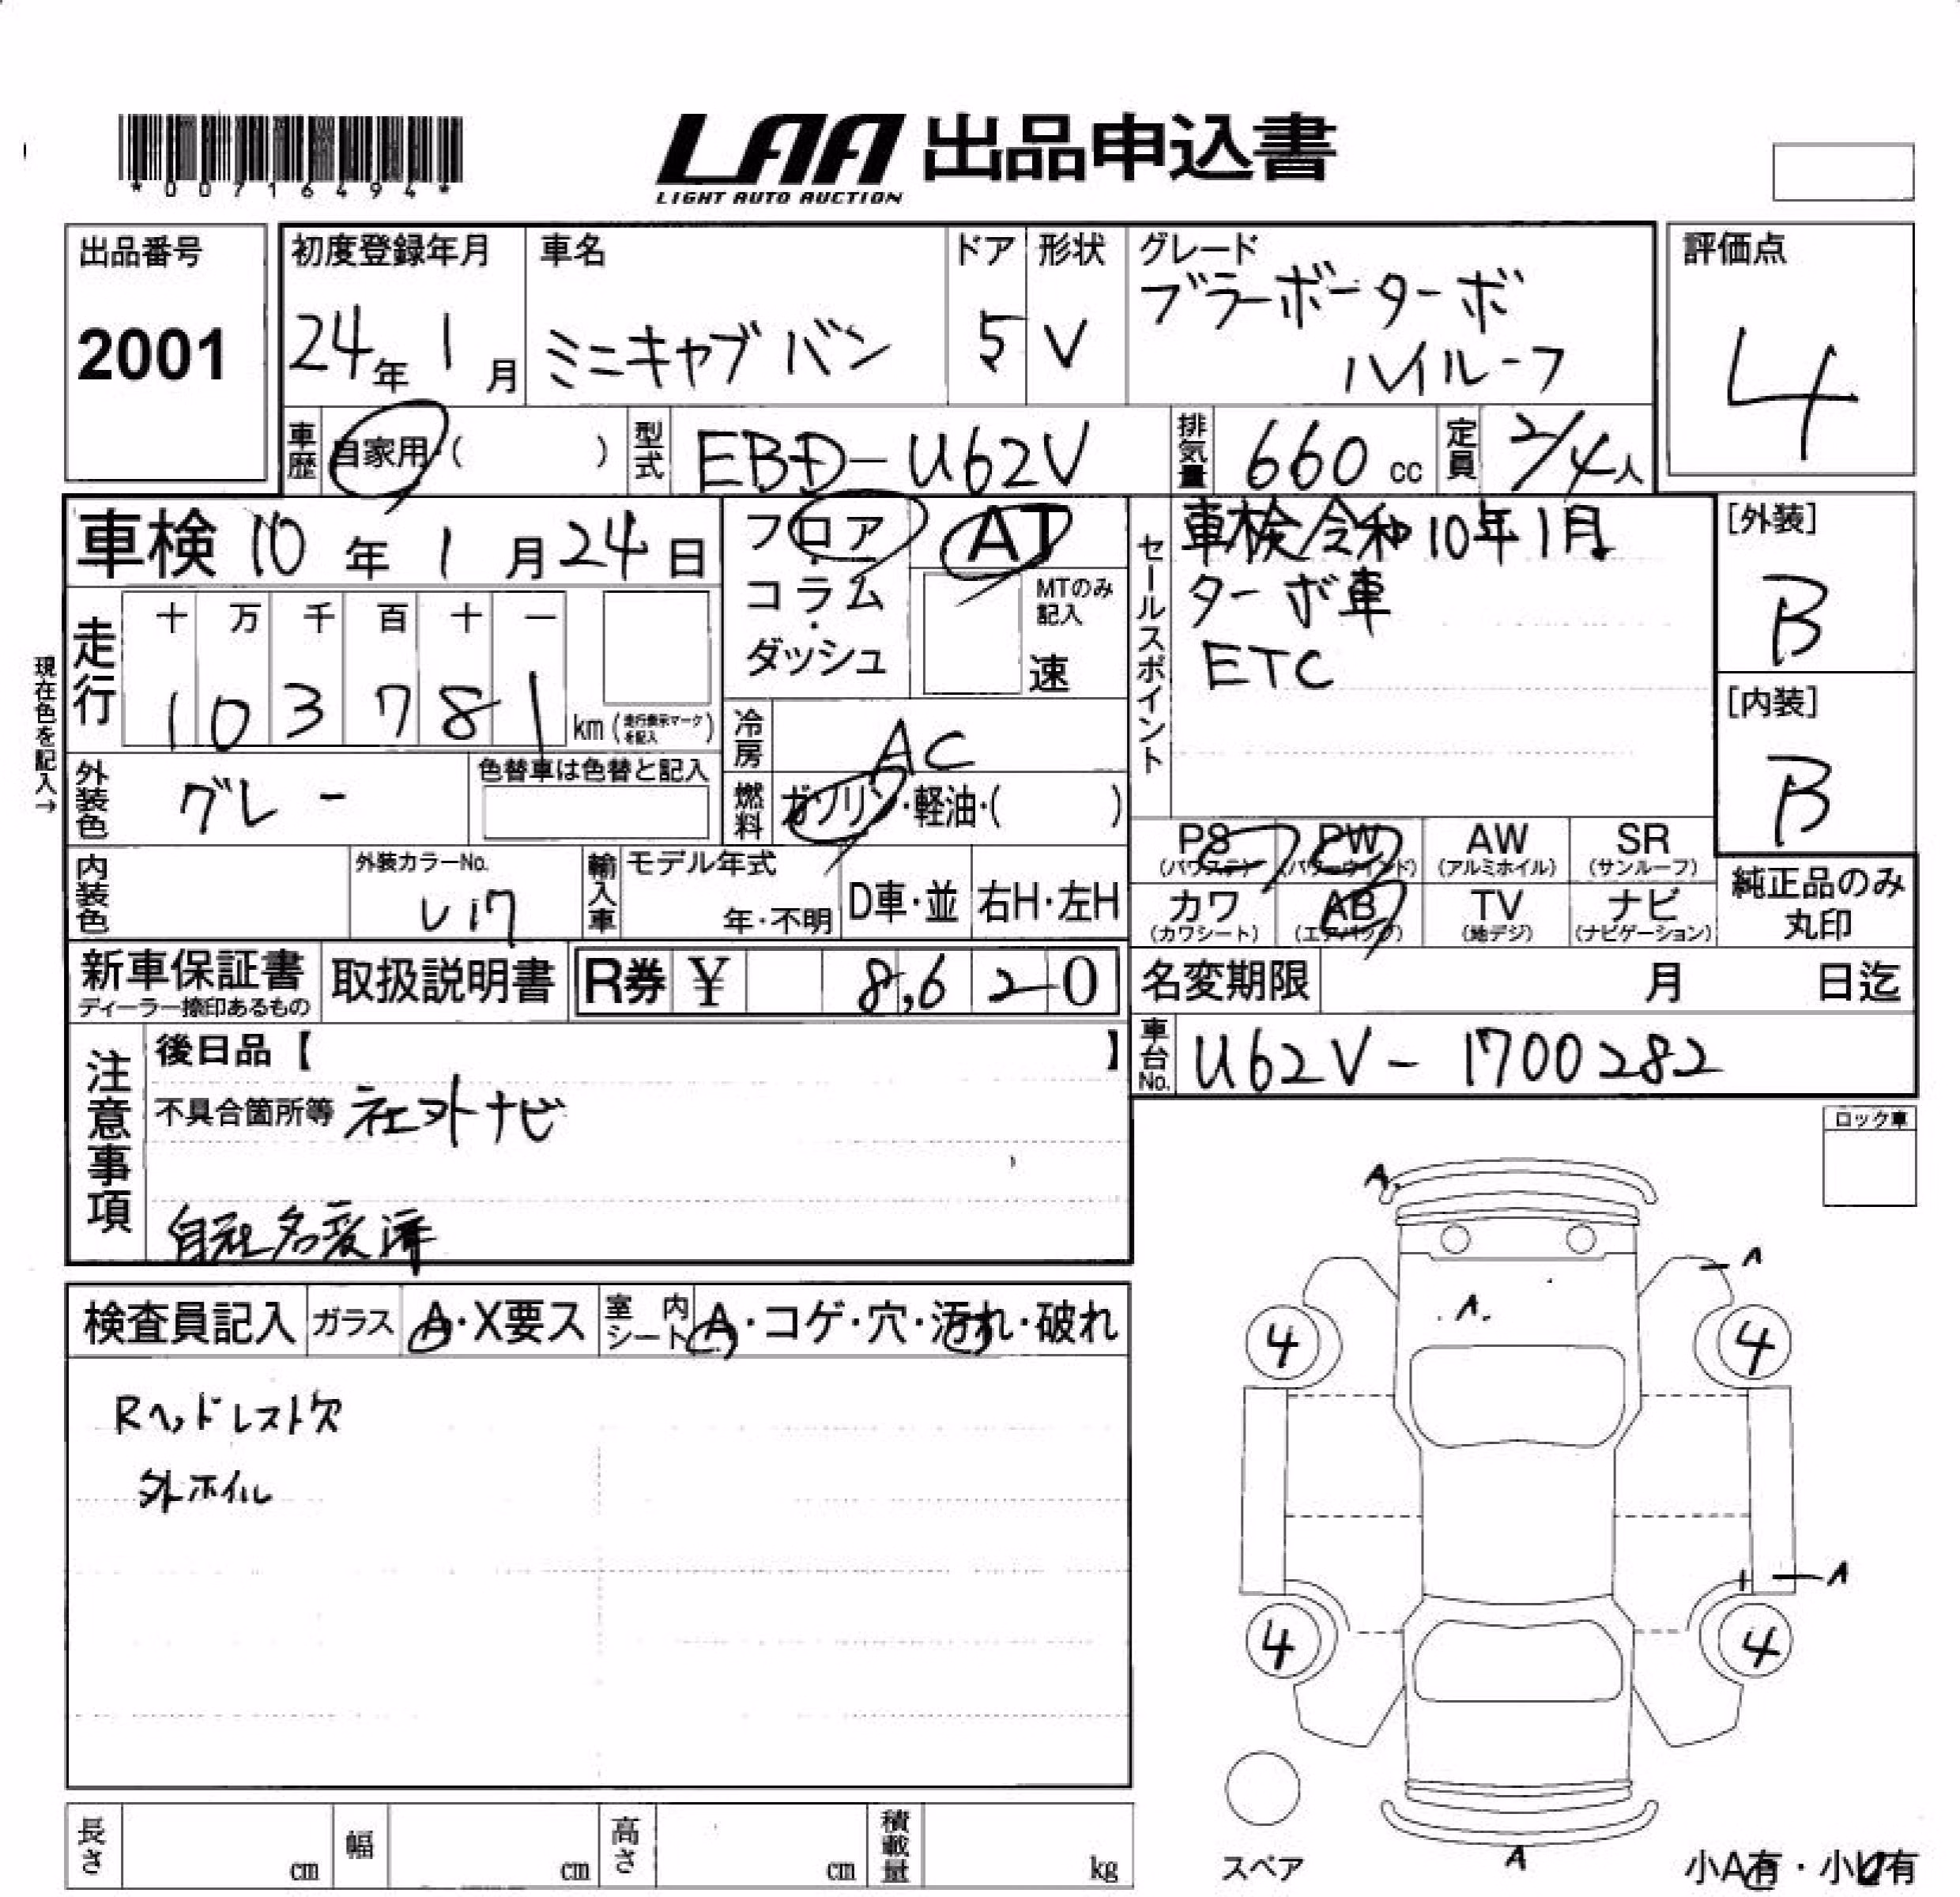 *00716494*
LAA 出品申込書
LIGHT AUTO AUCTION
出品番号
2001
初度登録年月
24年 1月
車名
ミニキャブ バン
ドア
5
形状
V
グレード
ブラボーターボ
ハイルーフ
評価点
4
車歴
自家用・( )
型式
EBD-U62V
排気量
660 cc
定員
2/4人
車検 10年 1月24日
走行
十 万 千 百 十 一
103781 km (走行表示マークを記入)
現在色を記入→
外装色
グレー
色替車は色替と記入
内装色
外装カラーNo.
U17
輸入車
モデル年式
年・不明
D車・並
右H・左H
フロア・コラム・ダッシュ
AT
MTのみ記入
速
冷房
AC
燃料
ガソリン・軽油・( )
セールスポイント
車検令和10年1月
ターボ車
ETC
[外装]
B
[内装]
B
PS (パワステ) PW (パワーウインド) AW (アルミホイル) SR (サンルーフ)
カワ (カワシート) AB (エアバッグ) TV (地デジ) ナビ (ナビゲーション)
純正品のみ丸印
新車保証書
ディーラー捺印あるもの
取扱説明書
R券 ¥ 8,620
名変期限 月 日迄
車台No.
U62V-1700282
注意事項
後日品【 】
不具合箇所等 社外ナビ
自社名変済
検査員記入
ガラス A・X要ス
室内シート A・コゲ・穴・汚れ・破れ
Rヘッドレスト欠
外ホイル
ロック車
A
A
A
4 4
A
4 4
A
スペア
小A有・小U有
長さ cm
幅 cm
高さ cm
積載量 kg